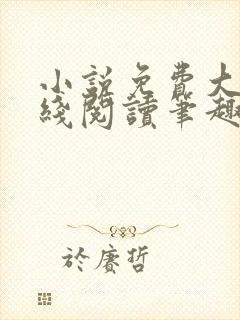 小說免費大
綫閱讀筆趣
於賡哲